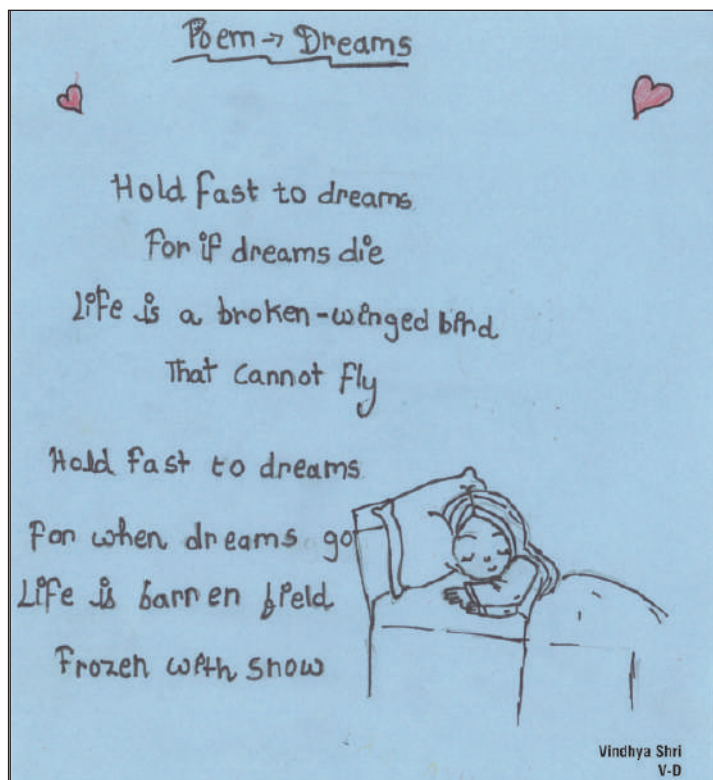 Poem → Dreams
Hold fast to dreams
For if dreams die
Life is a broken-winged bird
That cannot fly
Hold fast to dreams
For when dreams go
Life is barren field
Frozen with snow
Vindhya Shri
V-D